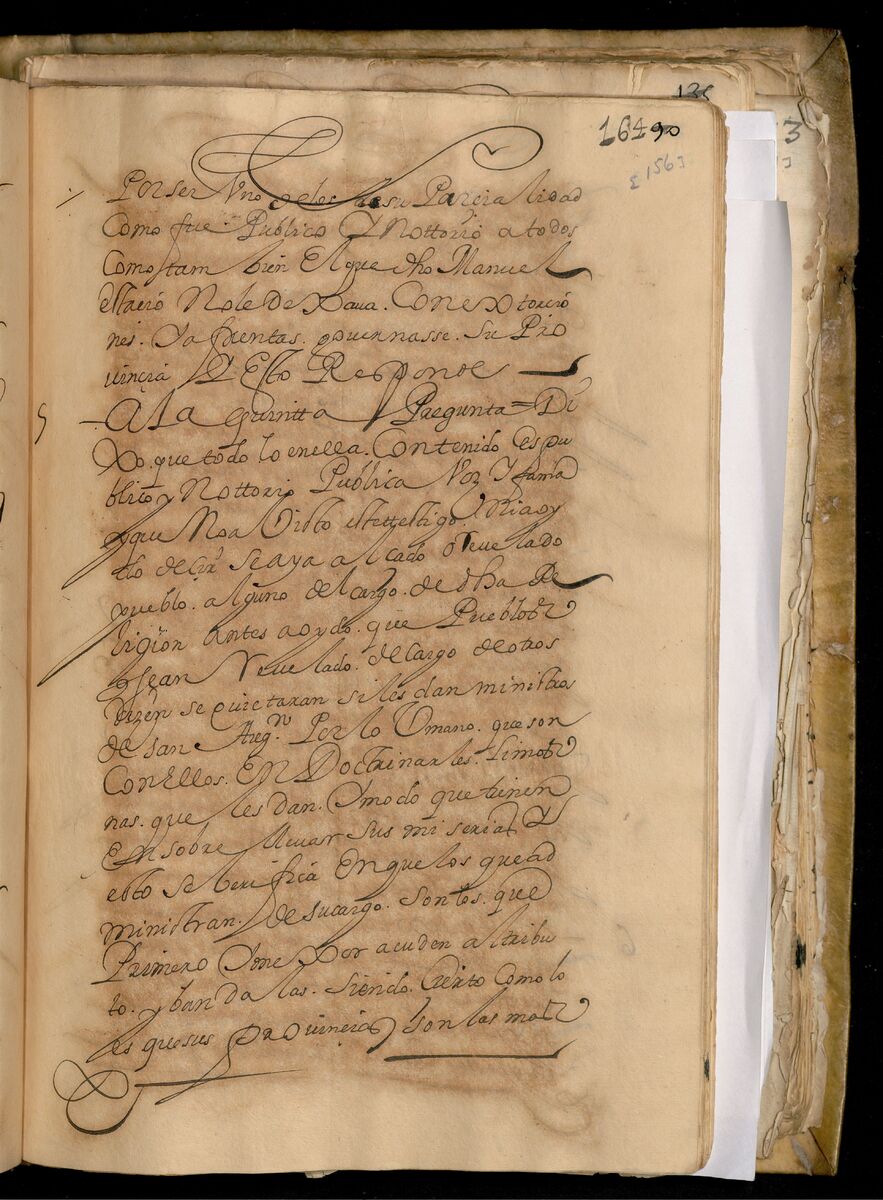 135
164 90
[156]
3
Por ser Vno de los de su Parcialidad
Como fue Publico Y Nottorio a todos
Como tam bien El que dho Manuel
estacio No le Dexaua. Con extorcio
nes. Y afrentas. gouernasse. Su Pro
uinçia Y Esto Responde
5 A La quintta Pregunta = Di
Xo. que todo lo en ella. Contenido es pu
blico y Nottorio Publica Voz Y fama
y que No a Visto este testigo.
tto decir Se aya alcado o Reuelado
pueblo. alguno del cargo. de dha Re
ligion antes a oydo. que Pueblos
q sean Reuelado. de Cargo de otros
dizen se quietaran si les dan ministros
de san Aug.n Por lo Umano. que son
Con Ellos. En Doctrinarles. Limos
nas. que les dan. Y modo que tienen
En sobre lleuar Sus miserias Y
esto se berifica En que los que ad
ministran. de su cargo. son los. que
Primero Y mexor acuden al tribu
to. y bandalas. siendo. Cierto como lo
es que sus prouincias son las mas